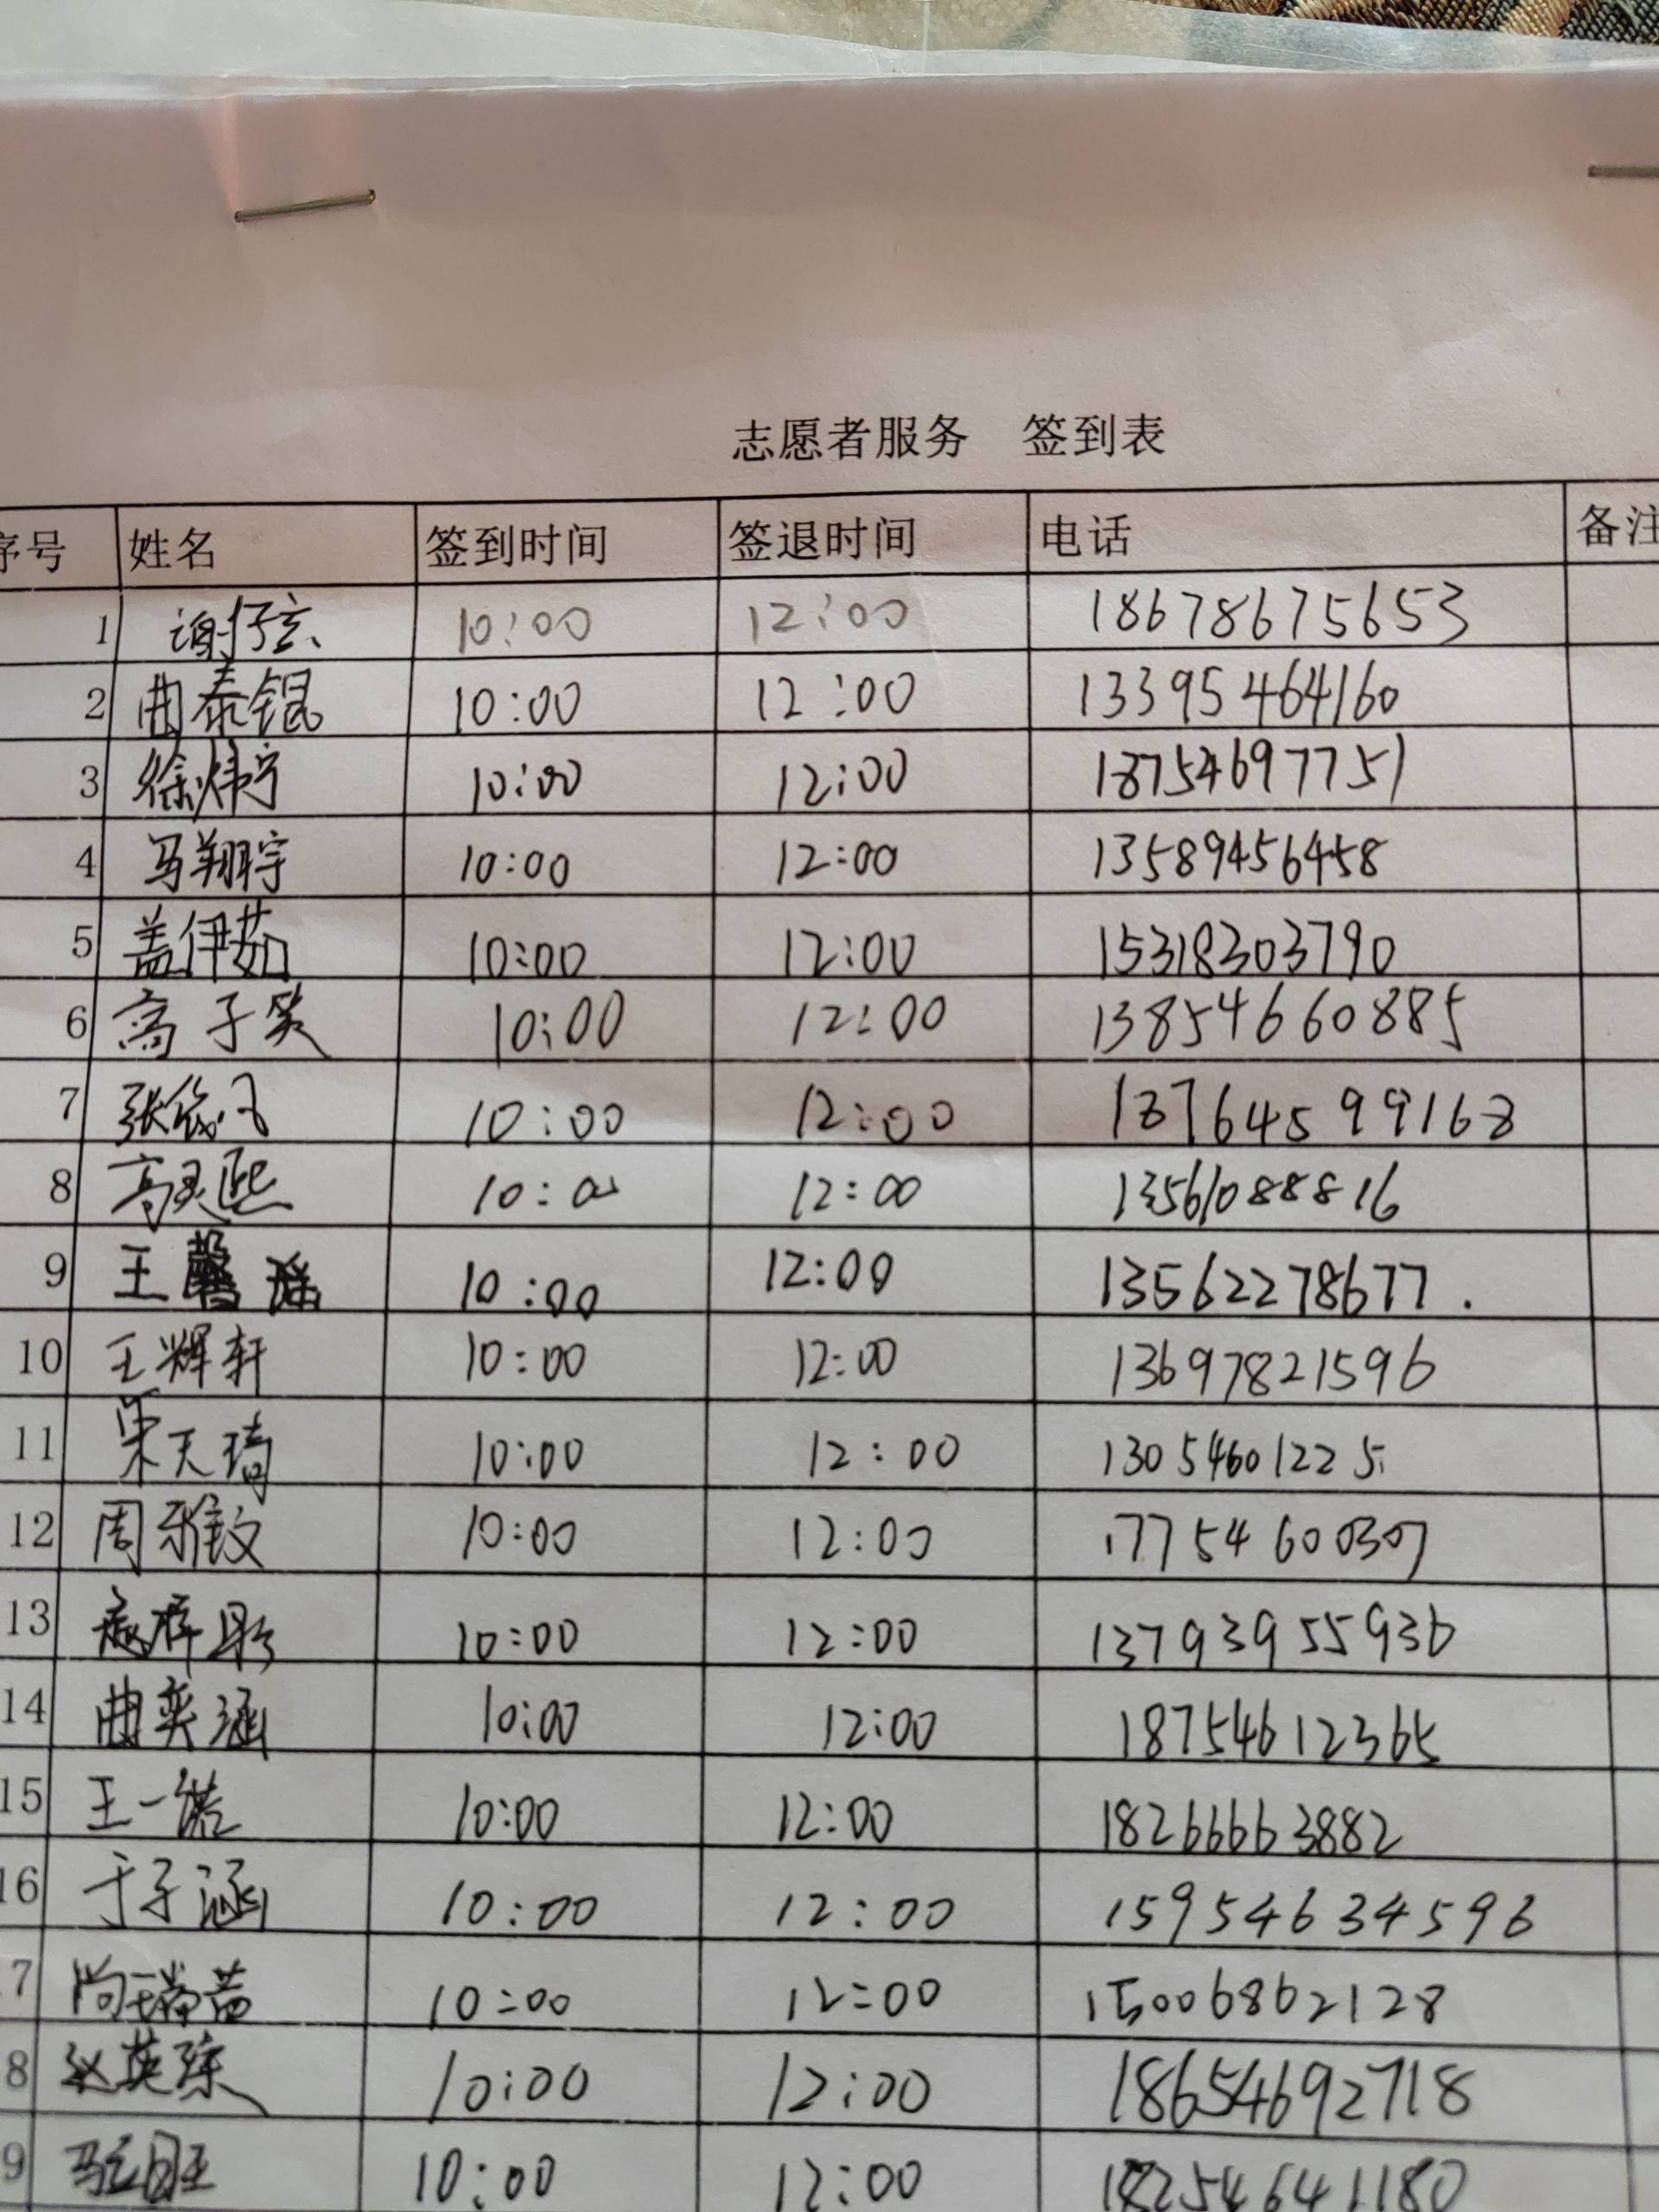 志愿者服务 签到表
序号 姓名 签到时间 签退时间 电话 备注
1 谢仔玄 10:00 12:00 18678675653
2 曲泰锟 10:00 12:00 13395464160
3 徐炜宁 10:00 12:00 18754697751
4 马翔宇 10:00 12:00 13589456458
5 盖伊茹 10:00 12:00 15318303790
6 高子笑 10:00 12:00 13854660885
7 张 10:00 12:00 18764599168
8 高灵熙 10:00 12:00 13561088816
9 王馨瑶 10:00 12:00 13562278677.
10 王辉轩 10:00 12:00 13697821596
11 宋天琦 10:00 12:00 13054601225
12 周雅文 10:00 12:00 17754600307
13 10:00 12:00 13793955936
14 曲奕涵 10:00 12:00 18754612365
15 王一诺 10:00 12:00 18266663882
16 于子涵 10:00 12:00 15954634596
7 尚瑞 10:00 12:00 15006862128
8 赵英 10:00 12:00 18654692718
9 马 10:00 12:00 18254641180